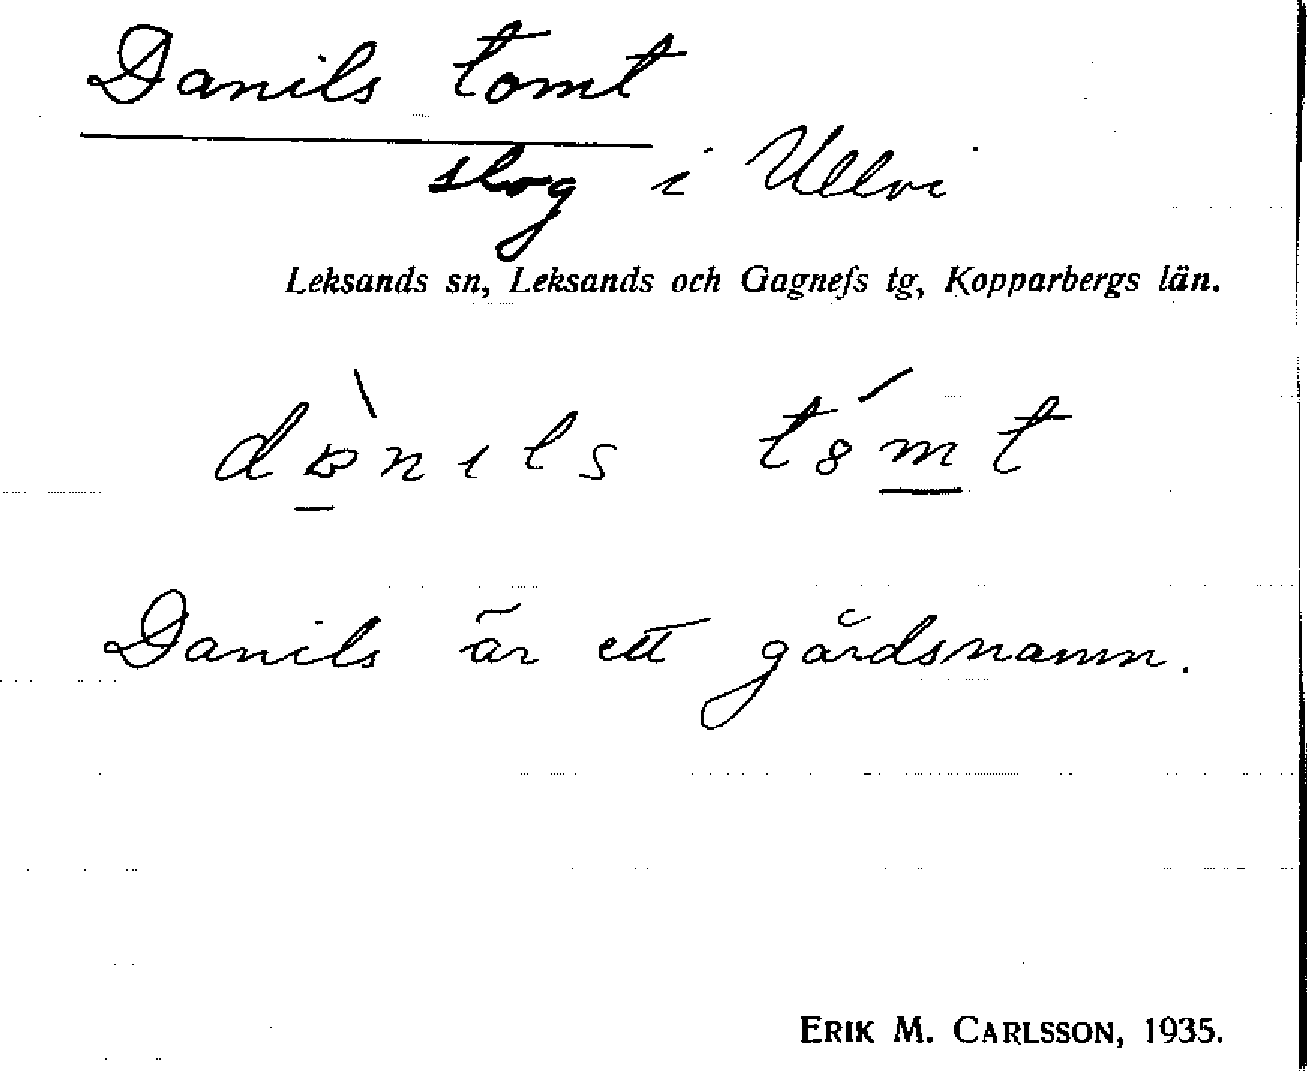 Danils tomt
slog i Ullvi
Leksands sn, Leksands och Gagnefs tg, Kopparbergs län.
Danils är ett gårdsnamn.
ERIK M. CARLSSON, 1935.